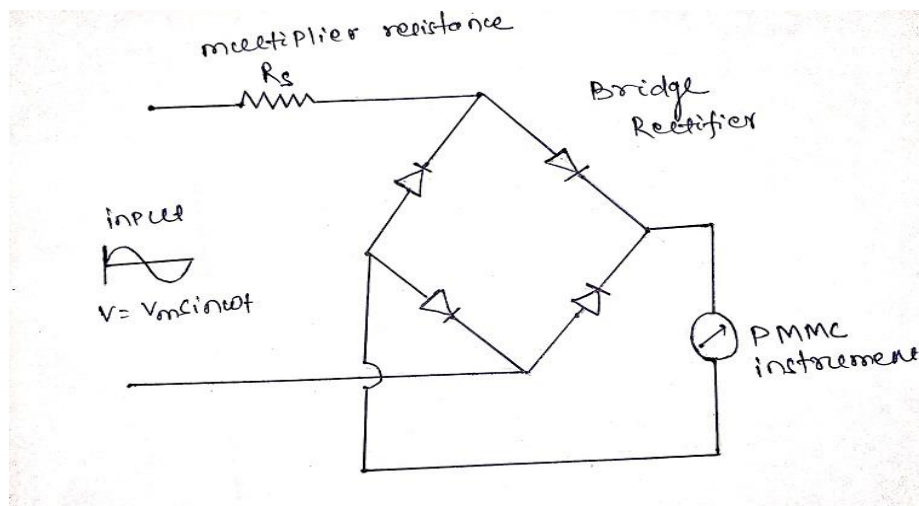 multiplier resistance
Rs
Bridge
Rectifier
input
V = Vmsinωt
PMMC
instrument